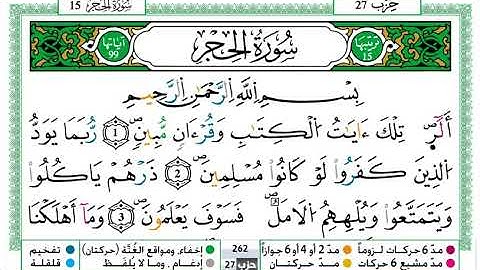 حزب 27 سُورَةُ الحِجْر 15
ترتيبها 15 سُورَةُ الحِجْرِ آياتها 99
بِسْمِ اِللَّهِ اِلرَّحْمَٰنِ اِلرَّحِيمِ
أَلَٓرۖ تِلْكَ ءَايَٰتُ اُ۬لْكِتَٰبِ وَقُرْءَانٖ مُّبِينٖۖ 1 رُّبَمَا يَوَدُّ
اُ۬لذِينَ كَفَرُواْ لَوْ كَانُواْ مُسْلِمِينَۖ 2 ذَرْهُمْ يَاكُلُواْ
وَيَتَمَتَّعُواْ وَيُلْهِهِمُ اُ۬لَامَلُۖ فَسَوْفَ يَعْلَمُونَۖ 3 وَمَآ أَهْلَكْنَا
مدّ 6 حركات لزوماً مدّ 2 أو 4 أو 6 جوازاً 262 إخفاء، ومواقع الغُنَّة (حركتان) تفخيم
مدّ مشبع 6 حركات مدّ حركتان حزب 27 إدغام، وما لا يُلفَظ قلقلة